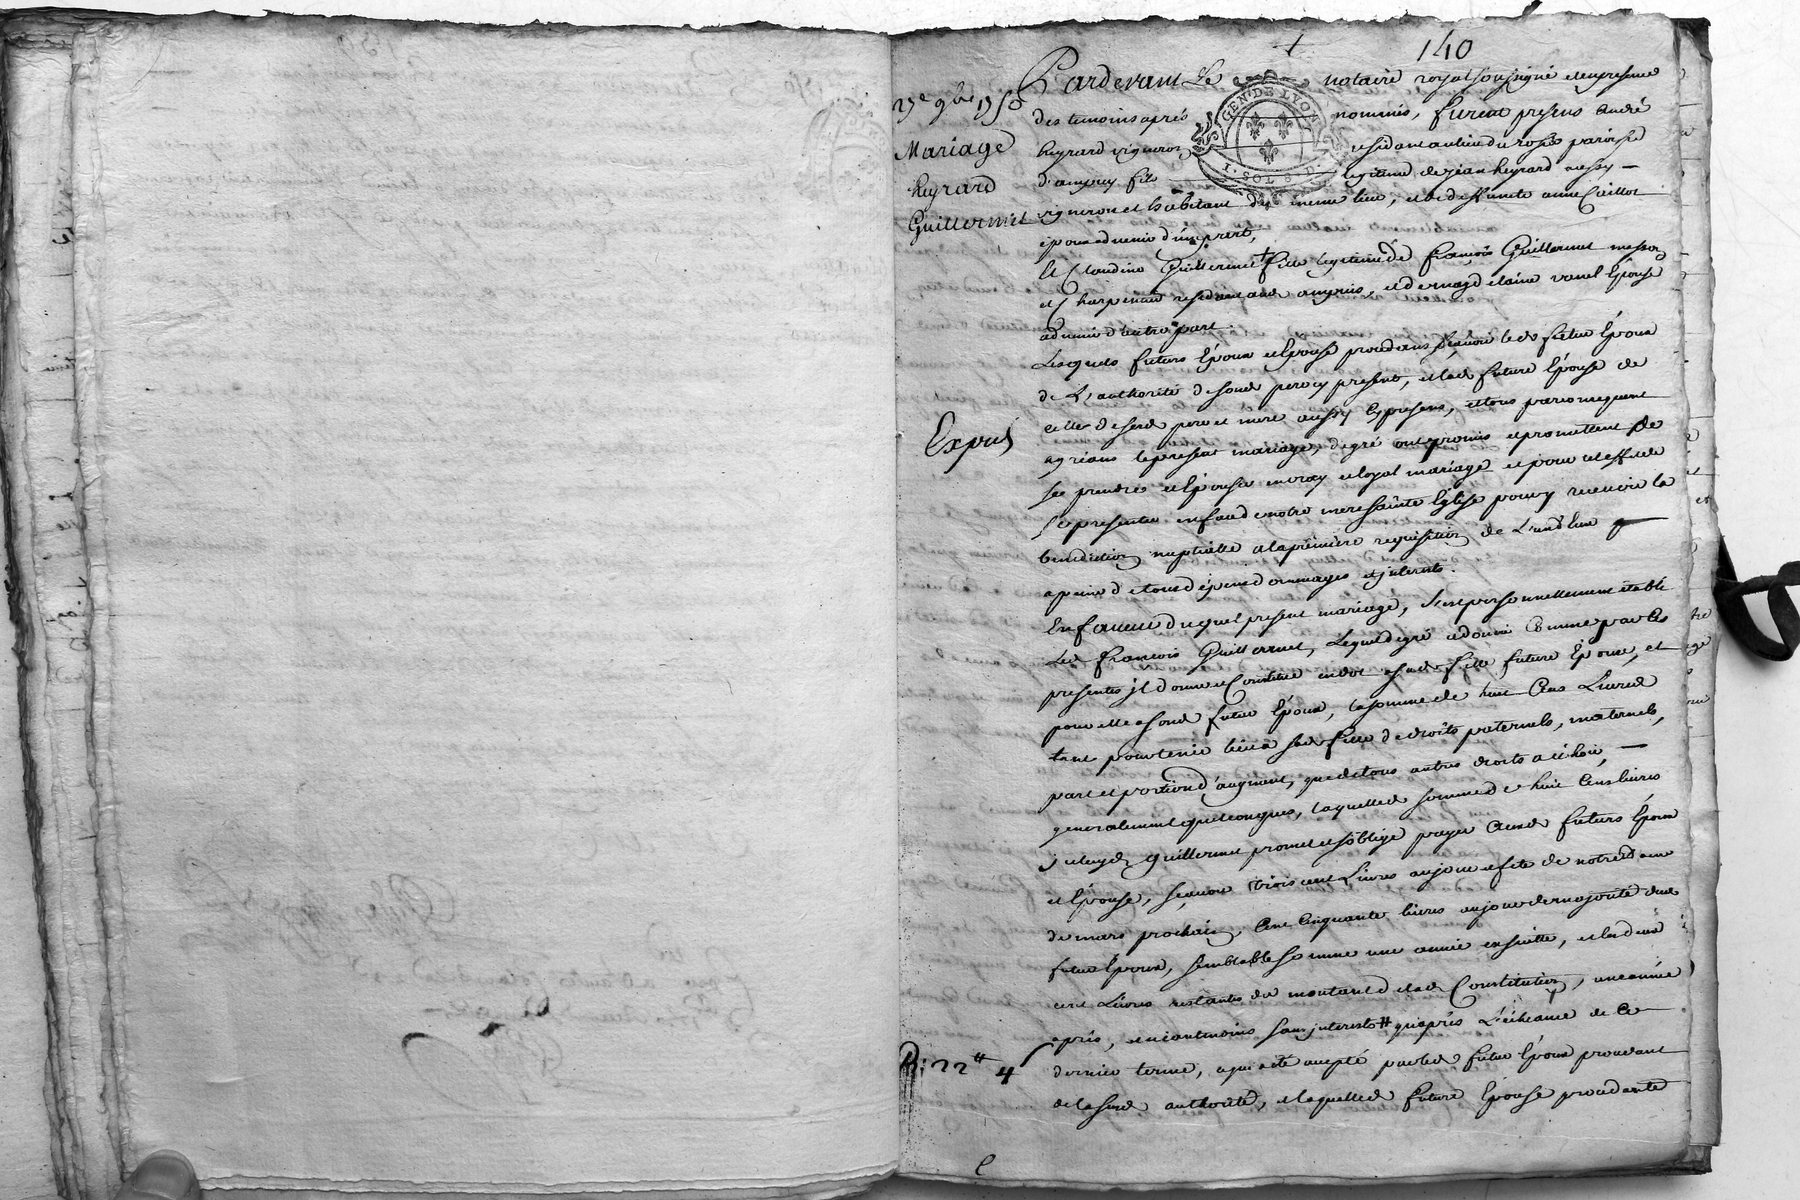 140
Pardevant Le notaire royal soussigné et en presence
des temoins après nommés, furent presens André
heyrard vigneron residant au lieu du rosé paroisse
d'ampuy fils legitime de jean heyrard aussy
vigneron et habitant du meme lieu, et de deffunte anne Caillot
epoux advenir d'une part,
Et Claudine Guillermet fille legitime de françois Guillermet masson
et Charpentier residant aud ampuis, et de magdelaine vanel Epouse
advenir d'autre part.
Lesquels futurs Epoux et Epouse procedans sçavoir led futur Epoux
de L'authorité de sond pere cy present, et lad future Epouse de
celle de sesd pere et mere aussy cy presens, et tous par consequent
agréans le present mariage, de gré ont promis et promettent de
se prendre et Epouser en vray et loyal mariage et pour cet effet de
se presenter en face de notre mere sainte Eglise pour y recevoir la
benediction nuptialle a la premiere requisition de L'un d'Eux
a peine de tous depens dommages et interests.
En faveur duquel present mariage, s'est personnellement établi
Led françois Guillermet, Lequel de gré a donné Comme par les
presentes il donne et Constitue en dot a sad fille future Epouse, et
pour elle a sond futur Epoux, la somme de huit Cens Livres
tant pour tenir lieu a sad fille de droits paternels, maternels,
part et portion d'augment, que de tous autres droits a échoir,
generalement quelconques, laquelle somme de huit Cens livres
icelluy Guillermet promet et s'oblige payer auxd futurs Epoux
et Epouse, sçavoir trois cent Livres au jour et fete de notre dame
de mars prochain, Cent Cinquante livres au jour de majorité dud
futur Epoux, semblable somme une année ensuitte, et les deux
cent Livres restantes du montant de lad Constitution, une année
après, et neantmoins sans interests # qu'après L'écheance de Ce
dernier terme, a qui a été accepté par led futur Epoux procedant
de lasusd authorité, et laquelle future Epouse procedante
27e 9bre 1750
Mariage
heyrard
Guillermet
Expié
R: 22# 4s